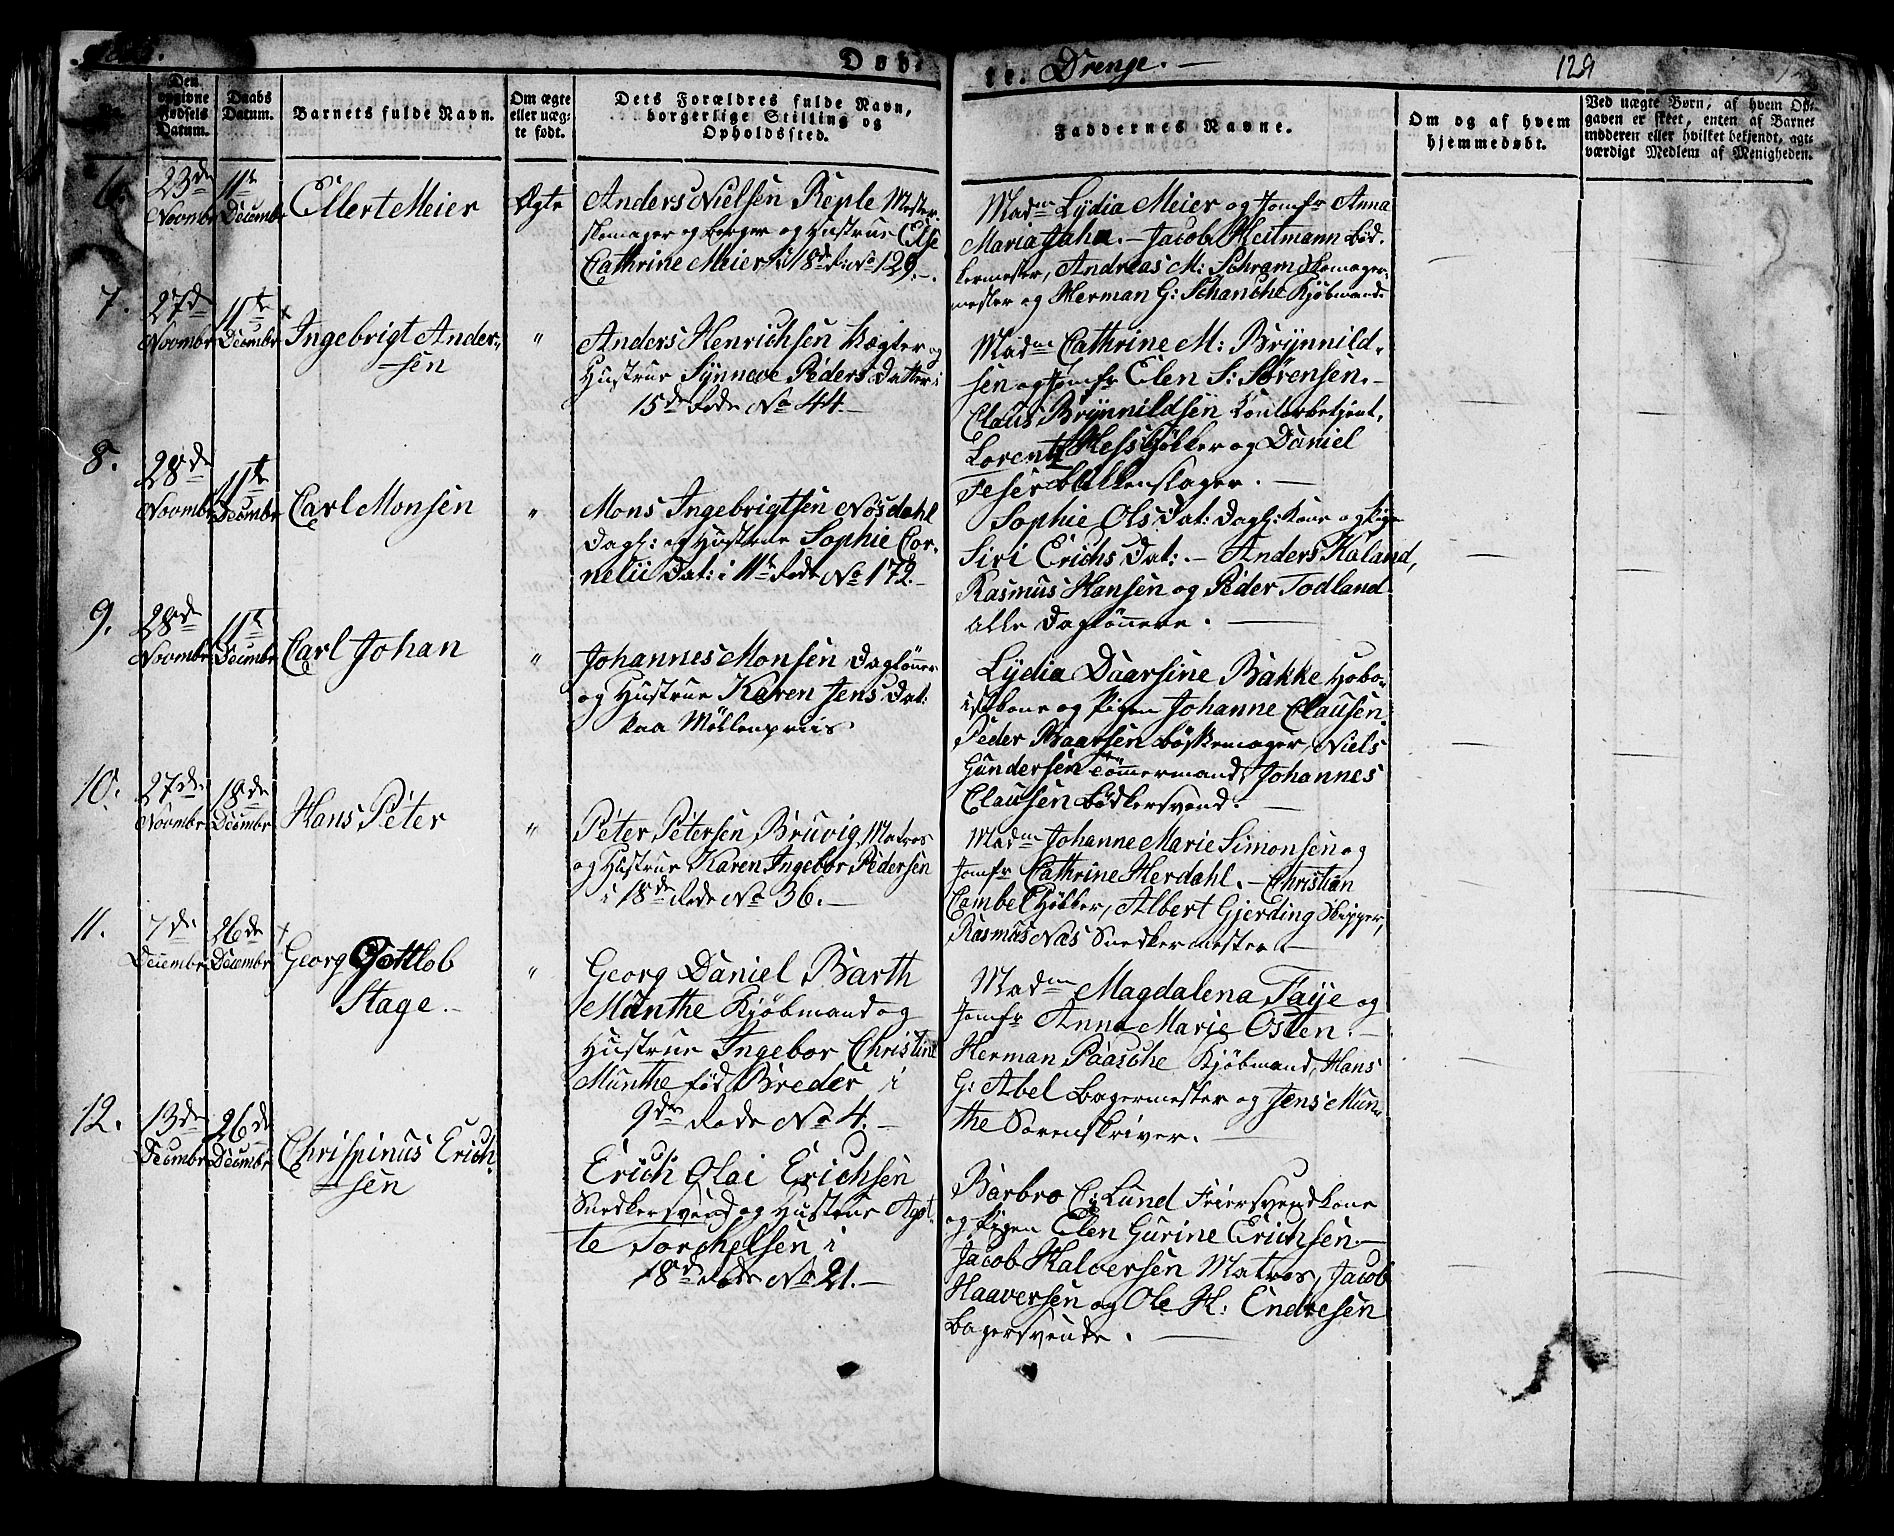 Døbte. Drenge. — 129
Den opgivne Fødsels Datum.
Daabs Datum.
Barnets fulde Navn.
Om ægte eller uægte født.
Dets Forældres fulde Navn, borgerlige Stilling og Opholdssted.
Faddernes Navne.
Om og af hvem hjemmedøbt.
Ved uægte Børn, af hvem Opgaven er skeet, enten af Barnemoderen eller hvilket bekjendt, agtværdigt Medlem af Menigheden.
6. 23de Novmbr 11te Decembr Ellert Meier Ægte
Anders Nielsen Reple Mester-
skomager og Borger og Hustrue Else
Cathrine Meier i 18de Rode No 129. —
Madm Lydia Meier og Jomfr Anna
Maria Jahn. — Jacob Heitmann Bød-
kermester, Andreas M: Schram Skomager-
mester og Herman G: Schansche Kjøbmand.
7. 27de Novmbr 11te Decmbr Ingebrigt Ander-
sen "
Anders Henrichsen Vægter og
Hustrue Synneve Peders Datter i
15de Rode No 44. —
Madm Cathrine M: Brynnild-
sen og Jomfr Elen S: Sørensen. —
Claus Brynnildsen Contorbetjent,
Lorentz Hess Høkker og Daniel
Feser Blikkenslager. —
8. 28de Novmbr 11te Decmbr Carl Monsen "
Mons Ingebrigtsen Nøsdahl
Dagl: og Hustrue Sophie Cor-
nelii Dat: i 11te Rode No 172. —
Sophie Ols Dat: Dagl: Kone og Pigen
Siri Erichs Dat: — Anders Kaland,
Rasmus Hansen og Peder Todland
alle Daglønnere. —
9. 28de Novmbr 11te Decmbr Carl Johan "
Johannes Monsen Daglønner
og Hustrue Karen Jens Dat:
paa Møllenpriis.
Lydia Daarsine Bakke Hobo-
istkone og Pigen Johanne Clausen.
Peder Baarsen Bøssemager, Niels
Gundersen Tømmermand, Johannes
Clausen Bødkersvend. —
10. 27de Novmbr 18de Decmbr Hans Peter "
Peter Petersen Bruvig, Matros
og Hustrue Karen Ingebor Pedersen
i 18de Rode No 36. —
Madm Johanne Marie Simonsen og
Jomfr Cathrine Herdahl. — Christian
Cambel Høkker, Albert Gjerding Skipper,
Rasmus Nas Snedkermester. —
11. 7de Decembr 26de Decembr Georg Gottlob
Stage. — "
Georg Daniel Barth
Munthe Kjøbmand og
Hustrue Ingebor Christine
Munthe fød Breder i
9de Rode No 4. —
Madm Magdalena Faye og
Jomfr Anna Marie Osten. —
Herman Paasche Kjøbmand, Hans
G: Abel Bagermester og Jens Mun-
the Sorenskriver. —
12. 13de Decmbr 26de Decmbr Chrispinus Erich-
sen
Erich Olai Erichsen
Snedkersvend og Hustrue Agat-
te Torchelsen i
18de Rode No 21. —
Barbro C: Lund Feiersvendkone
og Pigen Elen Gurine Erichsen. —
Jacob Halversen Matros, Jacob
Haaversen og Ole H: Endresen
Bagersvende. —